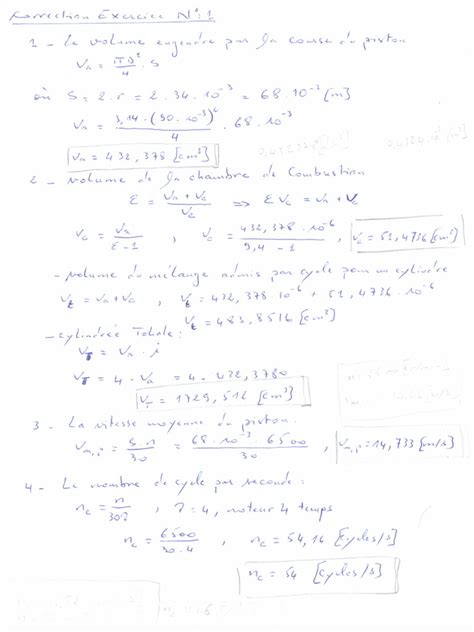 Correction Exercice N°:1
1 - Le volume engendré par la course du piston
Vₕ = πD²/4 . S
où S = 2.r = 2.34.10⁻³ = 68.10⁻³ [m]
Vₕ = 3,14.(90.10⁻³)²/4 . 68.10⁻³
Vₕ = 432,378 [cm³]
2 - volume de la chambre de Combustion
ε = Vₕ + Vc/Vc ⇒ εVc = Vₕ + Vc
Vc = Vₕ/ε-1 , Vc = 432,378.10⁻⁶/9,4-1 , Vc = 51,4736 [cm³]
- volume du mélange admis par cycle pour un cylindre
Vt = Vₕ + Vc , Vt = 432,378.10⁻⁶ + 51,4736.10⁻⁶
Vt = 483,8516 [cm³]
- cylindrée Totale :
VT = Vₕ . i
VT = 4.Vₕ = 4.432,3780
VT = 1729,512 [cm³]
3 - La vitesse moyenne du piston.
Vm,p = S.n/30 = 68.10⁻³.6500/30 , Vm,p = 14,733 [m/s]
4 - Le nombre de cycle par seconde :
nc = n/30τ , τ = 4, moteur 4 temps
nc = 6500/30.4 , nc = 54,16 [cycles/s]
nc = 54 [cycles/s]